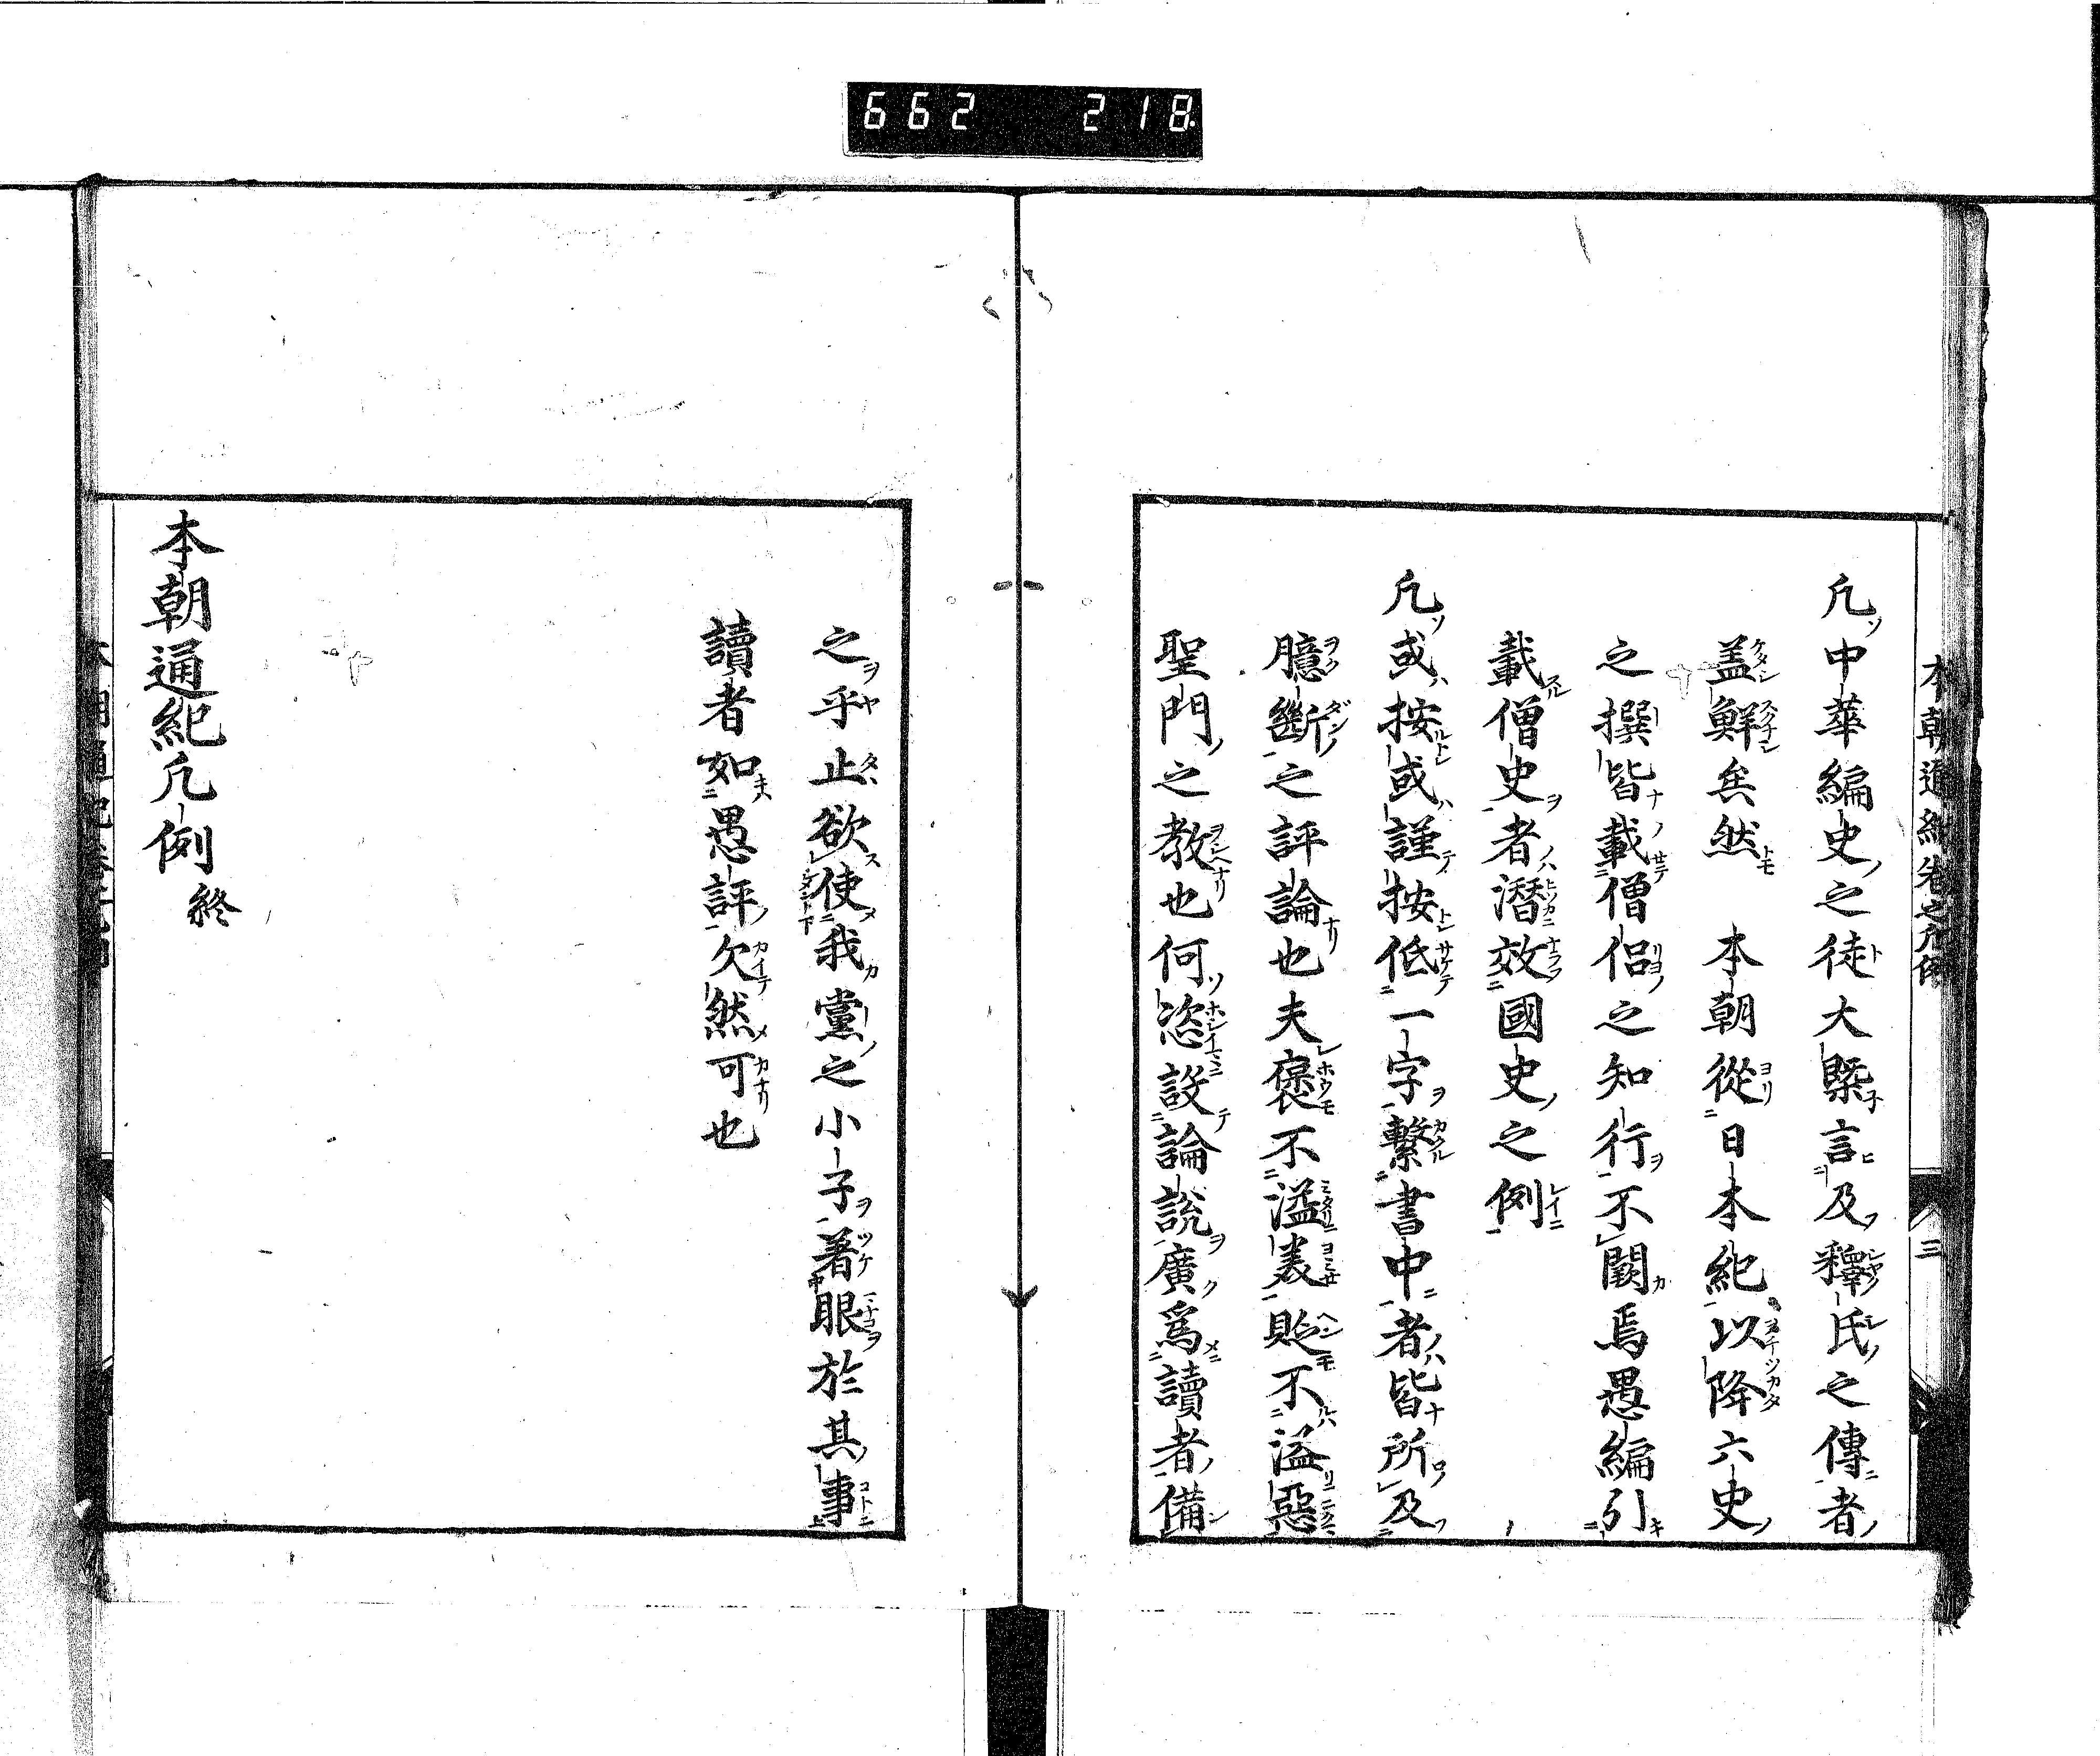 662 218
本朝通紀卷之凡例 三
凢中華編史之徒大槩言及釋氏之傳者
盖鮮矣然　本朝從日本紀以降六史
之撰皆載僧侶之知行不闕焉愚編引
載僧史者潛效國史之例
凢或按或謹按低一字繫書中者皆所及
臆斷之評論也夫褒不溢美貶不溢惡
聖門之教也何恣設論說廣爲讀者備
之乎止欲使我黨之小子著眼於其事
讀者如愚評欠然可也
本朝通紀凢例終